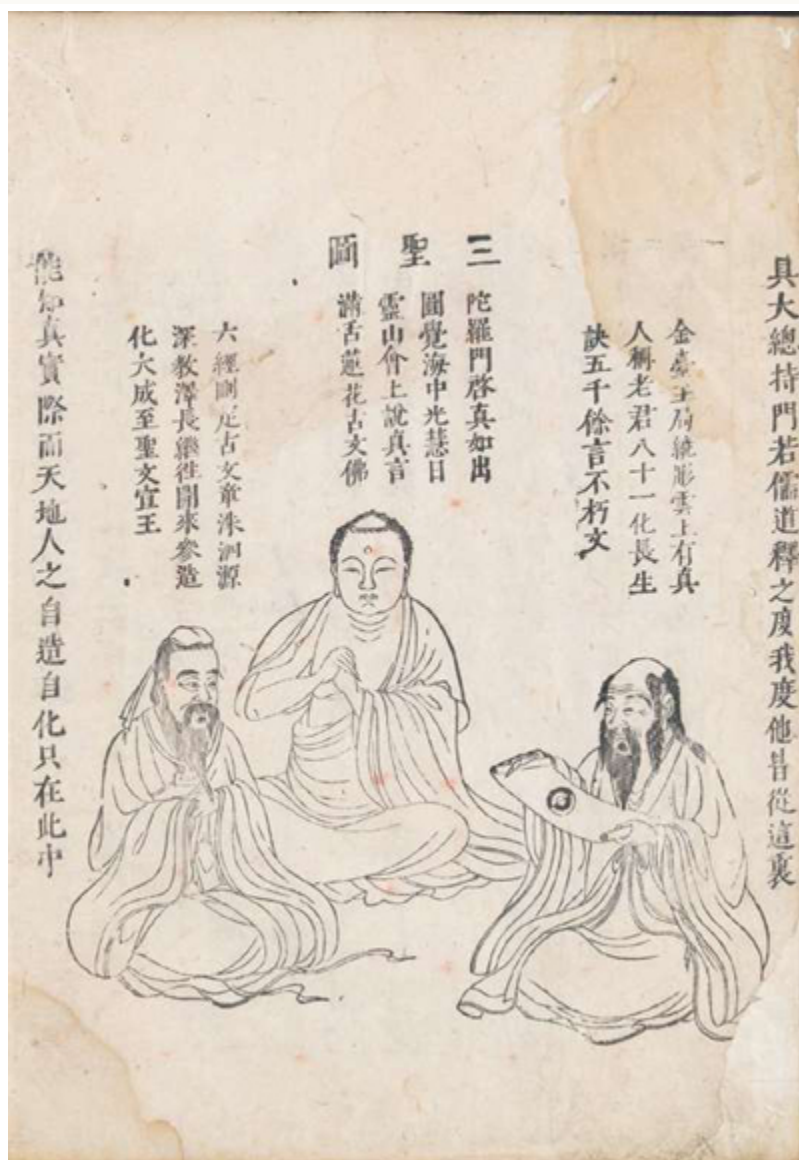 具大總持門若儒道釋之度我度他皆從這裏
金臺玉局繞彤雲上有真
人稱老君八十一化長生
訣五千餘言不朽文
三聖圖
陀羅門啓真如出
圓覺海中光慧日
靈山會上說真言
滿舌蓮花古文佛
六經刪定古文章洙泗源
深教澤長繼往開來參造
化大成至聖文宣王
能知真實際而天地人之自造自化只在此中